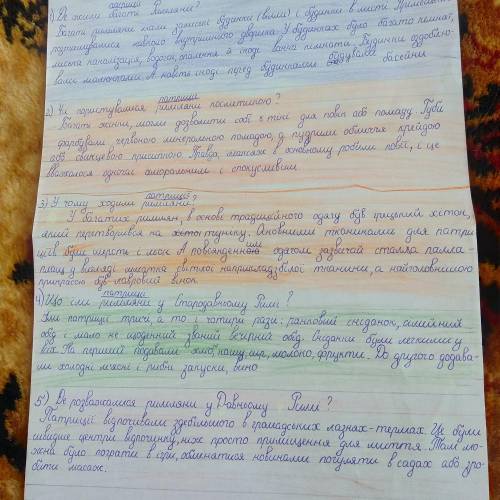 патриції
1) Де жили багаті Римляни?
Багаті римляни мали заміські будинки (вілли) і будинки в місті. Приміщення
розташувалися навколо внутрішнього дворика. У будинках було багато кімнат,
міська каналізація, водогін, опалення й іноді ванні кімнати. Будинки оздоблю-
вали малюнками. А навіть іноді перед будинками бували басейни
патриції
2) Чи користувалися римляни косметикою?
Багаті жінки, могли дозволити собі є тіні для повік або помаду. Губи
фарбували, червоною мінеральною помадою, а пудрили обличчя крейдою
або свинцевою присипкою. Правда, макіяж в основному робили повії, і це
вважалося одночас аморальним і спокусливим.
патриції
3) У чому ходили римляни?
У багатих римлян, в основі традиційного одягу був грецький хітон,
який перетворився на тунику. Основними тканинами для патри
ціїв були шерсть і льон. А повсякденною одягом зазвичай сталла палла -
плащ у вигляді шматка світлої наприклад білої тканини, а найголовнішою
прикрасою був лавровий вінок.
патриції
4) Що їли римляни у Стародавньому Римі?
Їли патриції тричі, а то і чотири рази: ранковий сніданок, сімейний
обід і мало не щоденний званий вечірний обід. Сніданки були легкими у
них. На перший подавали хліб, кашу, сир, молоко, фрукти. До другого додава-
ли холодні м'ясні і рибні закуски, вино
5) Де розважалися римляни у Давньому Римі?
Патриції відпочивали здебільшого в громадських лазнях-термах. Це були
швидше центри відпочинку, ніж просто приміщення для миття. Там мо-
жна було пограти в ігри, обмінятися новинами погуляти в садах або зро-
бити масаж.